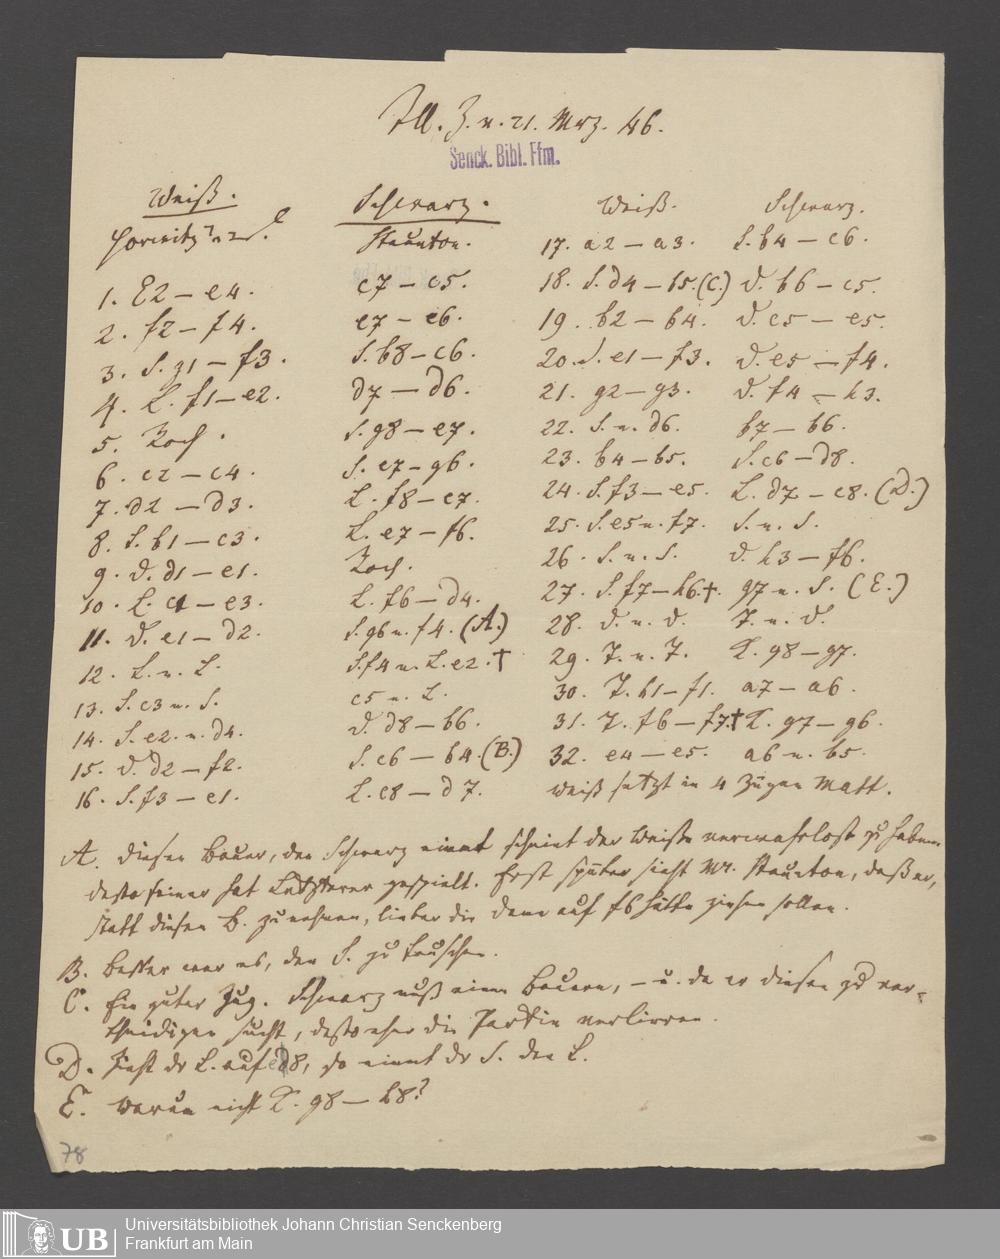 Ill. Z. v. 21. Mrz. 46.
Senck. Bibl. Ffm.
Weiß.
Schwarz.
Horwitz
Staunton.
1. E2 — e4. c7 — c5.
2. f2 — f4. e7 — e6.
3. S. g1 — f3. S. b8 — c6.
4. L. f1 — e2. d7 — d6.
5. Roch. S. g8 — e7.
6. c2 — c4. S. e7 — g6.
7. d2 — d3. L. f8 — e7.
8. S. b1 — c3. L. e7 — f6.
9. D. d1 — e1. Roch.
10. L. c1 — e3. L. f6 — d4.
11. D. e1 — d2. S. g6 n. f4. (A.)
12. L. n. L. S. f4 n. L. e2. †
13. S. c3 n. S. c5 n. L.
14. S. e2. n. d4. D. d8 — b6.
15. D. d2 — f2. S. c6 — b4. (B.)
16. S. f3 — e1. L. c8 — d7.
Weiß. Schwarz.
17. a2 — a3. S. b4 — c6.
18. S. d4 — b5. (C.) D. b6 — c5.
19. b2 — b4. D. c5 — e5.
20. S. e1 — f3. D. e5 — f4.
21. g2 — g3. D. f4 — h3.
22. S. n. d6. b7 — b6.
23. b4 — b5. S. c6 — d8.
24. S. f3 — e5. L. d7 — e8. (D.)
25. S. e5 n. f7. S. n. S.
26. S. n. S. D. h3 — f6.
27. S. f7 — h6. †. g7 n. S. (E.)
28. D. n. D. T. n. D.
29. T. n. T. K. g8 — g7.
30. T. b1 — f1. a7 — a6.
31. T. f6 — f7. † K. g7 — g6.
32. e4 — e5. a6 n. b5.
Weiß setzt in 4 Zügen Matt.
A. Diesen Bauer, den Schwarz nimmt scheint der Weiße verwahrlost zu haben
desto feiner hat Letzterer gespielt. Erst später sieht Mr. Staunton, daß er,
statt diesen B. zu nehmen, lieber die Dame auf f6 hätte ziehen sollen.
B. Besser war es, den S. zu tauschen.
C. Ein guter Zug. Schwarz muß einen Bauern, — u. da er diesen zu ver-
theidigen sucht, desto eher die Partie verlieren.
D. Zieht der L. auf 8, so nimmt der S. den L.
E. Warum nicht K. g8 — h8?
78
UB
Universitätsbibliothek Johann Christian Senckenberg
Frankfurt am Main